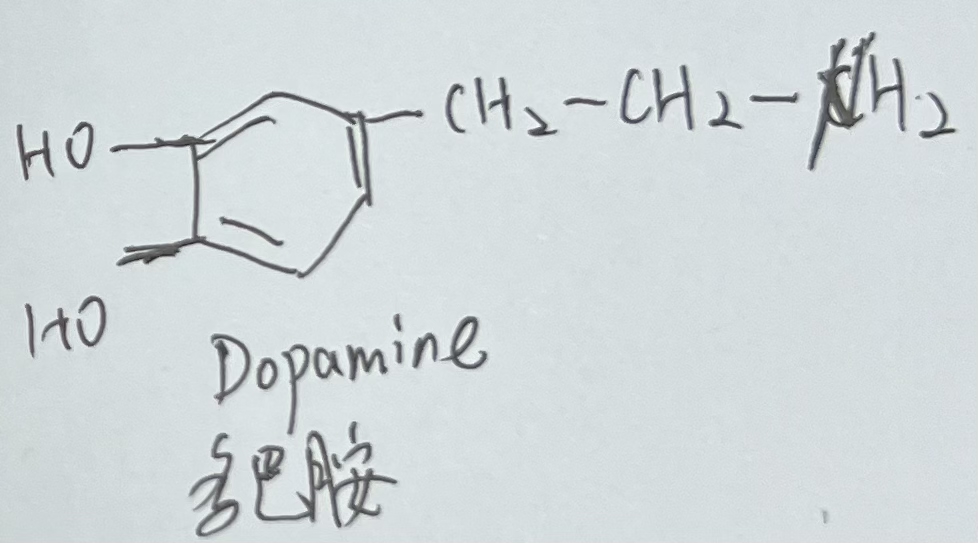 HO
CH₂-CH₂-NH₂
HO
Dopamine
多巴胺